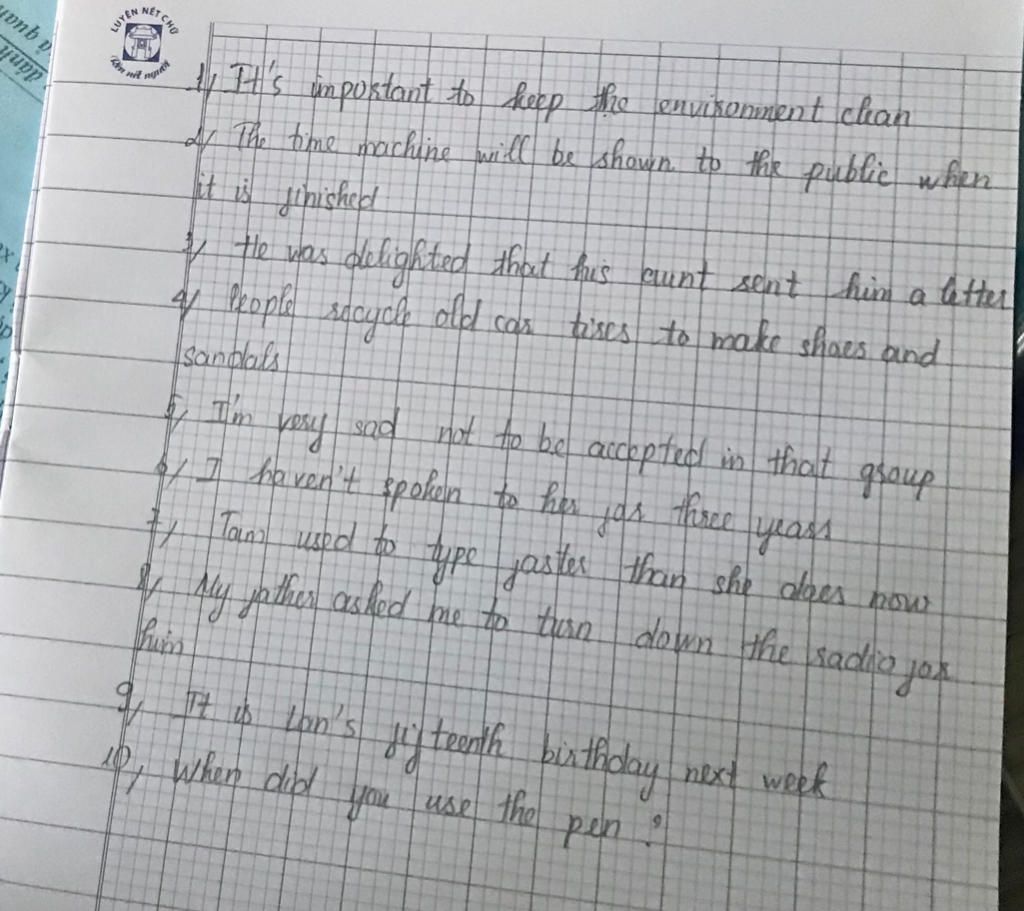 LUYỆN NÉT CHỮ
Rèn nết người
1, It's important to keep the environment clean
2, The time machine will be shown to the public when
it is finished
3, He was delighted that his aunt sent him a letter
4, People recycle old car tires to make shoes and
sandals
5, I'm very sad not to be accepted in that group
6, I haven't spoken to her for three years
7, Tam used to type faster than she does now
8, My father asked me to turn down the radio for
him
9, It is Lan's fifteenth birthday next week
10, When did you use the pen ?